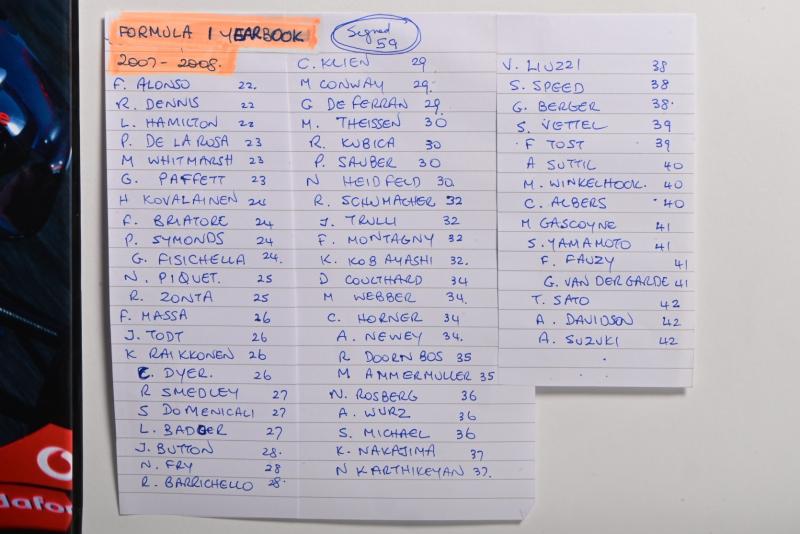 FORMULA 1 YEARBOOK
2007-2008.
Signed
59
F. ALONSO 22.
R. DENNIS 22
L. HAMILTON 22
P. DE LA ROSA 23
M WHITMARSH 23
G. PAFFETT 23
H KOVALAINEN 24
F. BRIATORE 24
P. SYMONDS 24
G. FISICHELLA 24.
N. PIQUET. 25
R. ZONTA 25
F. MASSA 26
J. TODT 26
K RAIKKONEN 26
C. DYER. 26
R SMEDLEY 27
S DOMENICALI 27
L. BADGER 27
J. BUTTON 28.
N. FRY 28
R. BARRICHELLO 28.
C. KLIEN 29
M CONWAY 29.
G DE FERRAN 29.
M. THEISSEN 30
R. KUBICA 30
P. SAUBER 30
N HEIDFELD 30.
R. SCHUMACHER 32
J. TRULLI 32
F. MONTAGNY 32
K. KOBAYASHI 32.
D COULTHARD 34
M WEBBER 34.
C. HORNER 34
A. NEWEY 34.
R DOORNBOS 35
M AMMERMULLER 35
N. ROSBERG 36
A. WURZ 36
S. MICHAEL 36
K. NAKAJIMA 37
N KARTHIKEYAN 37.
V. LIUZZI 38
S. SPEED 38
G. BERGER 38.
S. VETTEL 39
F TOST 39
A SUTTIL 40
M. WINKELHOCK. 40
C. ALBERS 40
M GASCOYNE 41
S. YAMAMOTO 41
F. FAUZY 41
G. VAN DER GARDE 41
T. SATO 42
A. DAVIDSON 42
A. SUZUKI 42
dafon